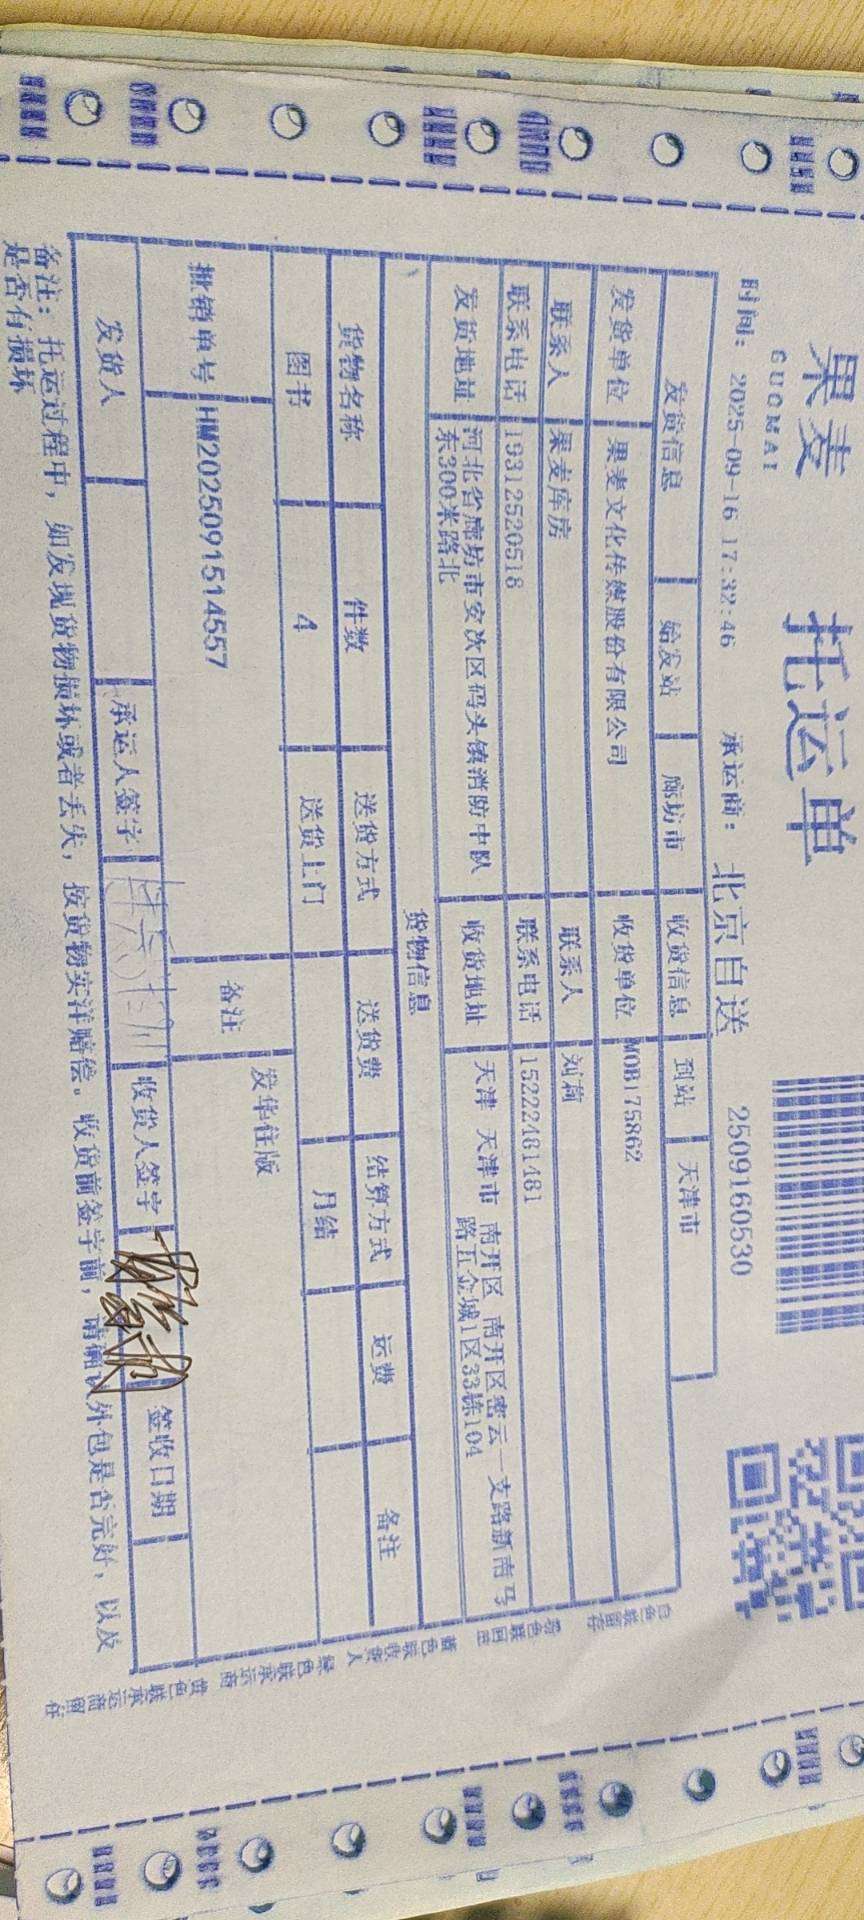 果麦
GUOMAI
托运单
时间: 2025-09-16 17:32:46 承运商: 北京自送 2509160530
发货信息 始发站 廊坊市 收货信息 到站 天津市
发货单位 果麦文化传媒股份有限公司 收货单位 WOB175862
联系人 果麦库房 联系人 刘荷
联系电话 19312520518 联系电话 15222481481
发货地址 河北省廊坊市安次区码头镇消防中队东300米路北 收货地址 天津 天津市 南开区 南开区密云一支路新南马路五金城1区33栋104
货物信息
货物名称 件数 送货方式 送货费 结算方式 运费 备注
图书 4 送货上门 月结
批销单号 HM2025091514557 备注 发华住版
发货人 承运人签字 收货人签字 签收日期
备注: 托运过程中, 如发现货物损坏或者丢失, 按货物实洋赔偿。收货前签字前, 请确认外包是否完好, 以及
是否有损坏
白色联留存
蓝色联收货人
绿色联承运商
黄色联承运商留存